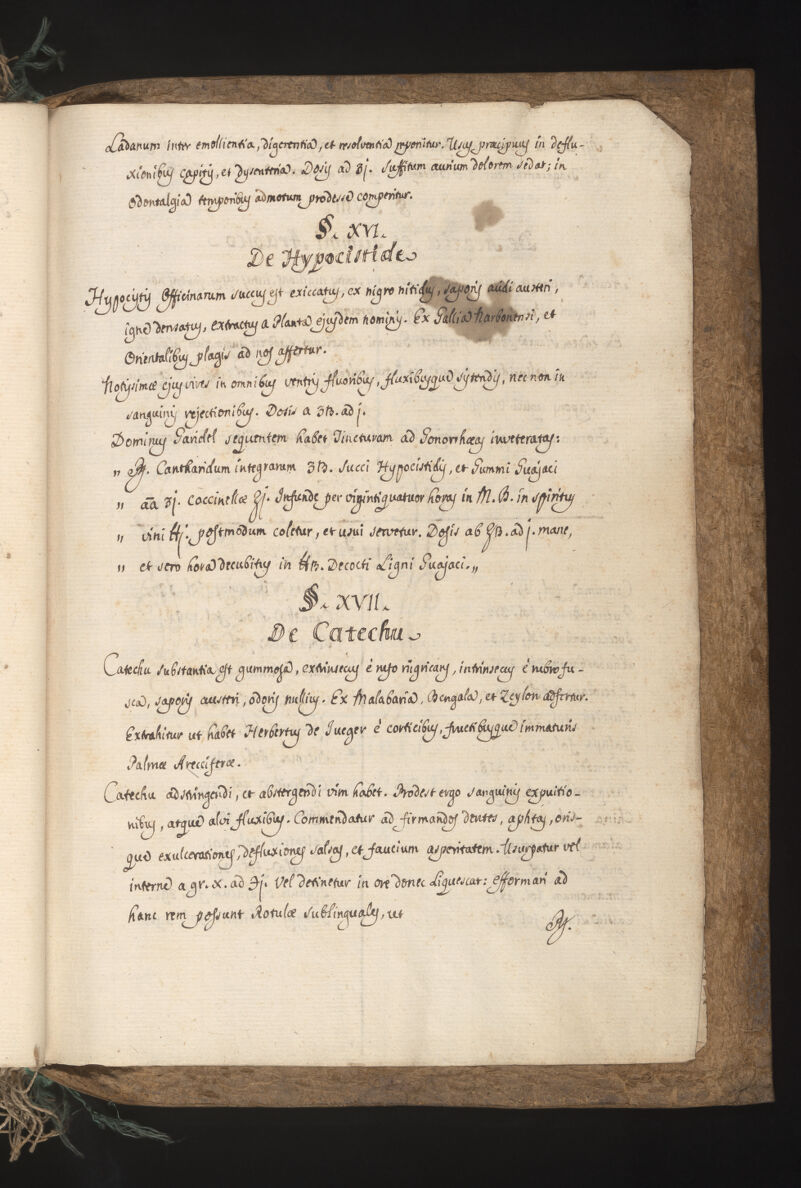 Ladanum inter emollientia, digerentia, et resolventia reponitur. Usus præcipuus in deflu-
xionibus capitis, et dysenteria. Dosis ad ʒj. suffitum aurium dolorem sedat; in
Odontalgia temporibus admotum prodesse comperitur.
§. XVI.
De Hypocistide
Hypocystis Officinarum succus est exiccatus, ex nigro nitidus, saporis acidi austeri,
igne densatus, extractus a Planta ejusdem nominis. Ex Gallia Narbonensi, et
Orientalibus plagis ad nos affertur.
Notissimæ ejus vires in omnibus ventris fluoribus, fluxibusque sistendis, nec non in
sanguinis rejectionibus. Dosis a ʒß. ad j.
Dominus Garidel sequentem habet Tincturam ad Gonorrhæas inveteratas:
„ ℞. Cantharidum integrarum ʒß. succi Hypocistidis, et Gummi Guajaci
„ aā ʒj. Coccinellæ ℥j. Infunde per viginti quatuor horas in M. B. in spiritus
„ vini ℔j. postmodum coletur, et usui servetur. Dosis ab ℥ß. ad j. mane,
„ et sero hora decubitus in ℔ß. Decocti Ligni Guajaci.„
§. XVII.
De Catechu
Catechu substantia est gummosa, extrinsecus è rufo nigricans, intrinsecus è rubro fu-
sca, saporis austeri, odoris nullius. Ex Malabaria, Bengala, et Zeylon adfertur.
Extrahitur ut habet Herbertus de Jueger è corticibus, fructibusque immaturis
Palmæ Arecciferæ.
Catechu adstringendi, et abstergendi vim habet. Prodest ergo sanguinis expuitio-
nibus, atque alvi fluxibus. Commendatur ad firmandos dentes, aphtas, oris-
que exulcerationes, defluxiones salsas, et faucium asperitatem. Usurpatur vel
interne a gr. X. ad ℈j. vel detinetur in ore donec liquescat: efformari ad
hanc rem possunt Rotulæ sublinguales, ut
℞.